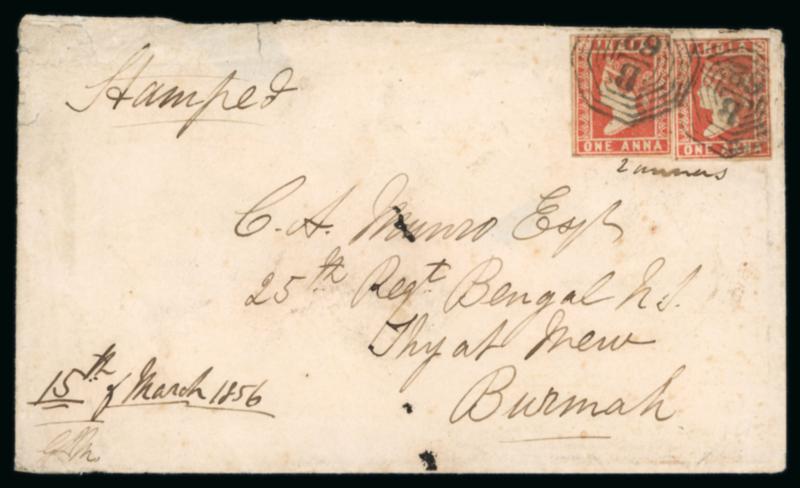 Stamped
INDIA INDIA
B B
ONE ANNA ONE ANNA
2 annas
C. A. Munro Esqr
25th Regt Bengal N.I.
Thyat Mew
Burmah
15th of March 1856